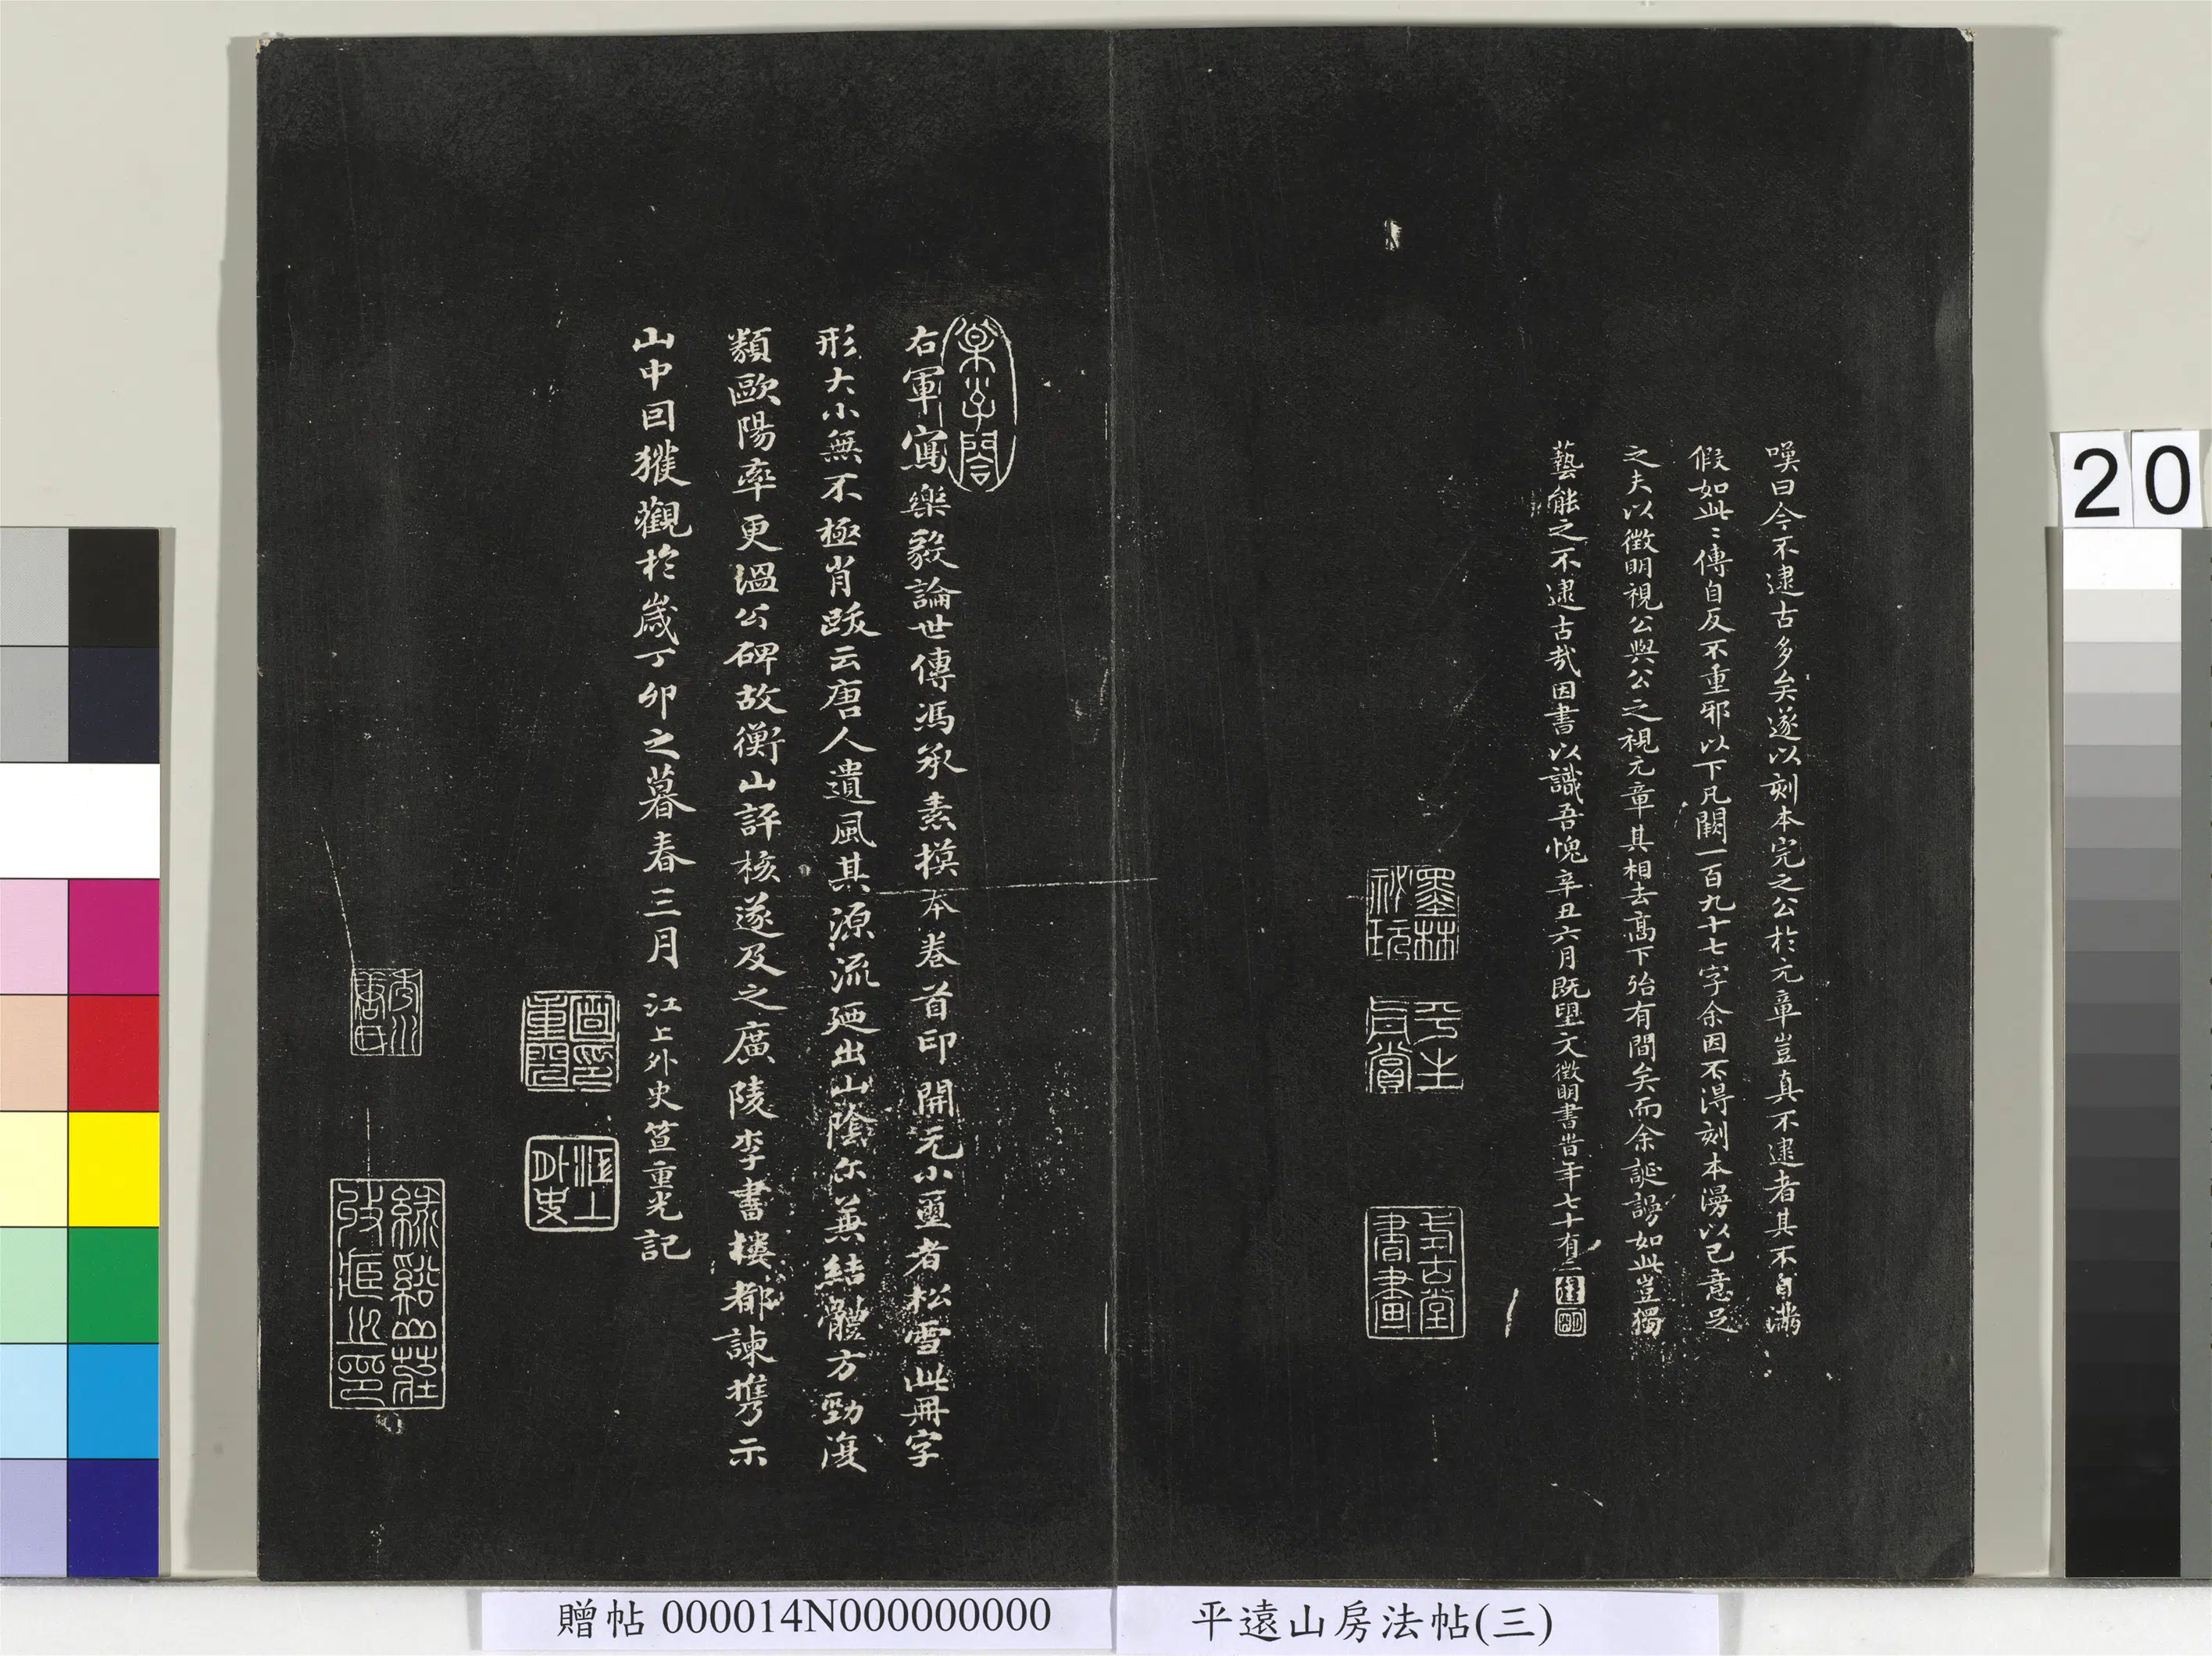 嘆曰今不逮古多矣遂以刻本完之公於元章豈真不逮者其不自滿
假如此〻傳自反不重邪以下凡闕一百九十七字余因不得刻本漫以己意足
之夫以徵明視公與公之視元章其相去高下殆有間矣而余誕謾如此豈獨
藝能之不逮古哉因書以識吾愧辛丑六月既望文徵明書昔年七十有二
墨林
祕玩
平生
真賞
右軍寫樂毅論世傳馮承素摸本卷首印開元小璽者松雪此冊字
形大小無不極肖跋云唐人遺風其源流迺出山陰尔蕪結體方勁復
類歐陽率更溫公碑故衡山評核遂及之廣陵李書樓都諫攜示
山中回獲觀於歲丁卯之暮春三月 江上外史笪重光記
笪印
重光
江上
外史
綠谿山莊
20
贈帖 000014N000000000
平遠山房法帖(三)